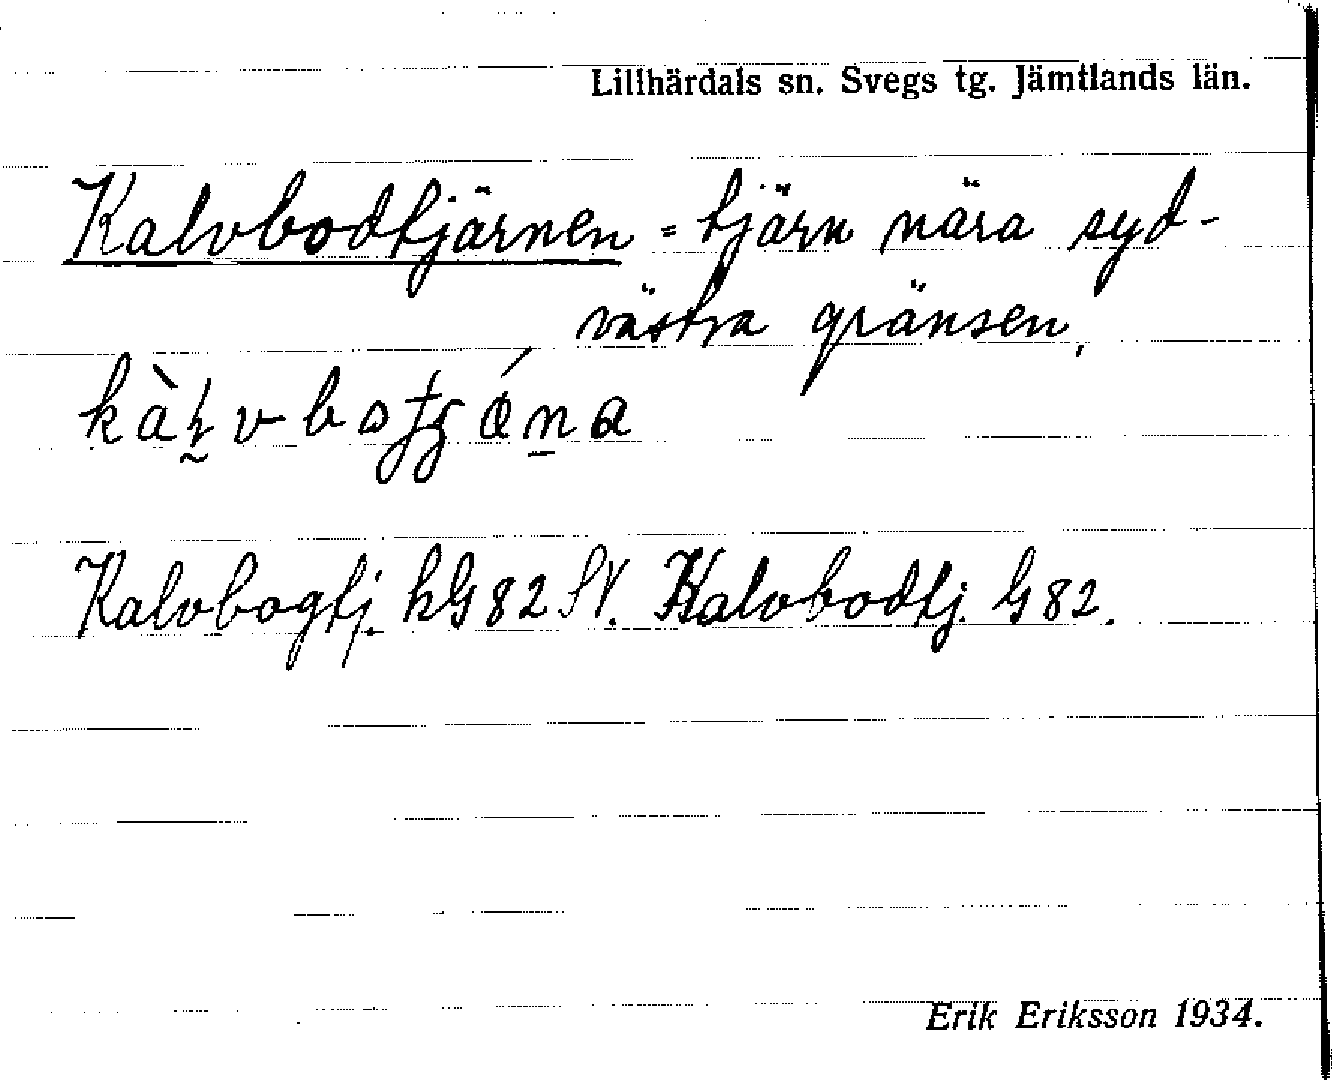 Lillhärdals sn. Svegs tg. Jämtlands län.
Kalvbodtjärnen = tjärn nära syd-
västra gränsen.
Kalvbogtj. hG82 SV. Kalvbodtj. G82.
Erik Eriksson 1934.